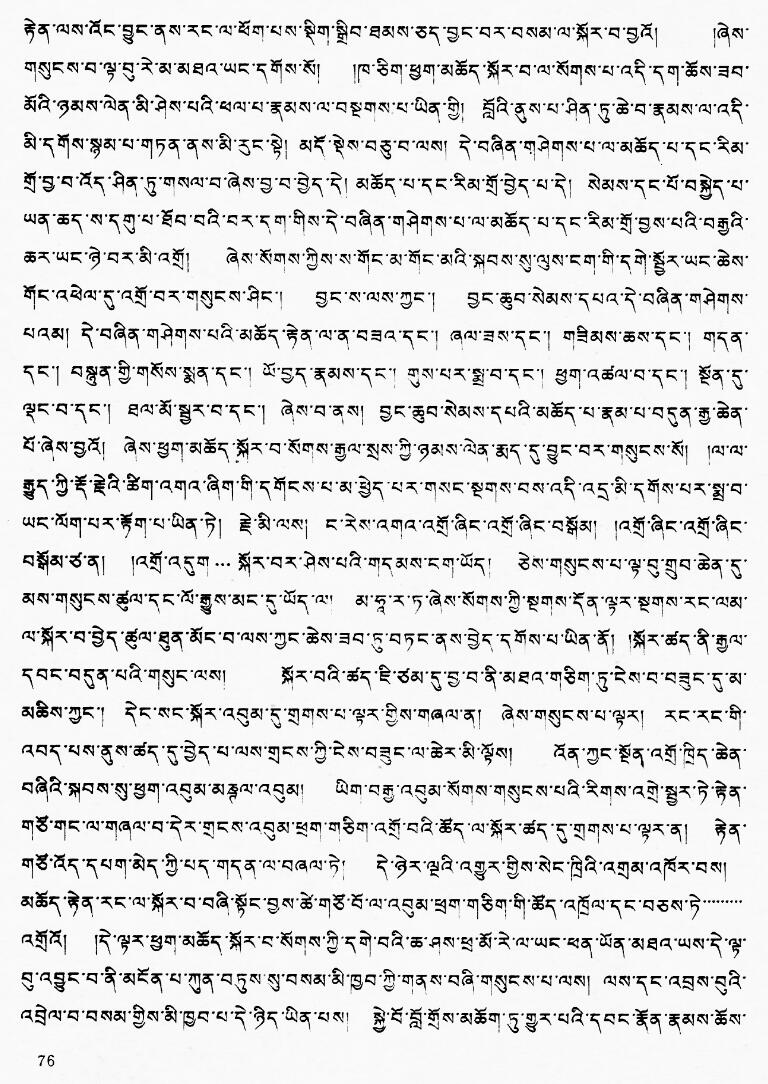 རྟེན་ལས་འོང་བྱུང་ནས་རང་ལ་ཕོག་པས་སྡིག་སྒྲིབ་ཐམས་ཅད་བྱང་བར་བསམ་ལ་སྐོར་བ་བྱའོ། །ཞེས་
གསུངས་བ་ལྟ་བུ་རེ་མ་མཐའ་ཡང་དགོས་སོ། །ཁ་ཅིག་ཕྱག་མཆོད་སྐོར་བ་ལ་སོགས་པ་འདི་དག་ཆོས་ཟབ་
མོའི་ཉམས་ལེན་མི་ཤེས་པའི་ཕལ་པ་རྣམས་ལ་བསྔགས་པ་ཡིན་གྱི། བློའི་ནུས་པ་ཤིན་ཏུ་ཆེ་བ་རྣམས་ལ་འདི་
མི་དགོས་སྙམ་པ་གཏན་ནས་མི་རུང་སྟེ། མདོ་སྡེས་བཅུ་བ་ལས། དེ་བཞིན་གཤེགས་པ་ལ་མཆོད་པ་དང་རིམ་
གྲོ་བྱ་བ་འོད་ཤིན་ཏུ་གསལ་བ་ཞེས་བྱ་བ་བྱེད་དེ། མཆོད་པ་དང་རིམ་གྲོ་བྱེད་པ་དེ། སེམས་དང་པོ་བསྐྱེད་པ་
ཡན་ཆད་ས་དགུ་པ་ཐོབ་བའི་བར་དག་གིས་དེ་བཞིན་གཤེགས་པ་ལ་མཆོད་པ་དང་རིམ་གྲོ་བྱས་པའི་བརྒྱའི་
ཆར་ཡང་ཉེ་བར་མི་འགྲོ། ཞེས་སོགས་ཀྱིས་ས་གོང་མ་གོང་མའི་སྐབས་སུ་ལུས་ངག་གི་དགེ་སྦྱོར་ཡང་ཆེས་
གོང་འཕེལ་དུ་འགྲོ་བར་གསུངས་ཤིང་། བྱང་ས་ལས་ཀྱང་། བྱང་ཆུབ་སེམས་དཔའ་དེ་བཞིན་གཤེགས་
པའམ། དེ་བཞིན་གཤེགས་པའི་མཆོད་རྟེན་ལ་ན་བཟའ་དང་། ཞལ་ཟས་དང་། གཟིམས་ཆས་དང་། གདན་
དང་། བསྙུན་གྱི་གསོས་སྨན་དང་། ཡོ་བྱད་རྣམས་དང་། གུས་པར་སྨྲ་བ་དང་། ཕྱག་འཚལ་བ་དང་། སྔོན་དུ་
ལྡང་བ་དང་། ཐལ་མོ་སྦྱར་བ་དང་། ཞེས་བ་ནས། བྱང་ཆུབ་སེམས་དཔའི་མཆོད་པ་རྣམ་པ་བདུན་རྒྱ་ཆེན་
པོ་ཞེས་བྱའོ། ཞེས་ཕྱག་མཆོད་སྐོར་བ་སོགས་རྒྱལ་སྲས་ཀྱི་ཉམས་ལེན་རྨད་དུ་བྱུང་བར་གསུངས་སོ། །ལ་ལ་
རྒྱུད་ཀྱི་རྡོ་རྗེའི་ཚིག་འགའ་ཞིག་གི་དགོངས་པ་མ་ཕྱེད་པར་གསང་སྔགས་བས་འདི་འདྲ་མི་དགོས་པར་སྨྲ་བ་
ཡང་ལོག་པར་རྟོག་པ་ཡིན་ཏེ། རྗེ་མི་ལས། ང་རེས་འགའ་འགྲོ་ཞིང་འགྲོ་ཞིང་བསྒོམ། །འགྲོ་ཞིང་འགྲོ་ཞིང་
བསྒོམ་ཙ་ན། །འགྲོ་འདུག ... སྐོར་བར་ཤེས་པའི་གདམས་ངག་ཡོད། ཅེས་གསུངས་པ་ལྟ་བུ་གྲུབ་ཆེན་དུ་
མས་གསུངས་ཚུལ་དང་ལོ་རྒྱུས་མང་དུ་ཡོད་ལ། མ་ཧཱ་ར་ཏ་ཞེས་སོགས་ཀྱི་སྔགས་དོན་ལྟར་སྔགས་རང་ལམ་
ལ་སྐོར་བ་བྱེད་ཚུལ་ཐུན་མོང་བ་ལས་ཀྱང་ཆེས་ཟབ་ཏུ་བཏང་ནས་བྱེད་དགོས་པ་ཡིན་ནོ། །སྐོར་ཚད་ནི་རྒྱལ་
དབང་བདུན་པའི་གསུང་ལས། སྐོར་བའི་ཚད་ཇི་ཙམ་དུ་བྱ་བ་ནི་མཐའ་གཅིག་ཏུ་ངེས་བ་བཟུང་དུ་མ་
མཆིས་ཀྱང་། དེང་སང་སྐོར་འབུམ་དུ་གྲགས་པ་ལྟར་གྱིས་གཞལ་ན། ཞེས་གསུངས་པ་ལྟར། རང་རང་གི་
འབད་པས་ནུས་ཚད་དུ་བྱེད་པ་ལས་གྲངས་ཀྱི་ངེས་བཟུང་ལ་ཆེར་མི་ལྟོས། འོན་ཀྱང་སྔོན་འགྲོ་ཁྲིད་ཆེན་
བཞིའི་སྐབས་སུ་ཕྱག་འབུམ་མཎྜལ་འབུམ། ཡིག་བརྒྱ་འབུམ་སོགས་གསུངས་པའི་རིགས་འགྲེ་སྦྱར་ཏེ་རྟེན་
གཙོ་གང་ལ་གཞལ་བ་དེར་གྲངས་འབུམ་ཕྲག་གཅིག་འགྲོ་བའི་ཚོད་ལ་སྐོར་ཚད་དུ་གྲགས་པ་ལྟར་ན། རྟེན་
གཙོ་འོད་དཔག་མེད་ཀྱི་པད་གདན་ལ་བཞལ་ཏེ། དེ་ཉེར་ལྔའི་འགྱུར་གྱིས་སེང་ཁྲིའི་འགྲམ་འཁོར་བས།
མཆོད་རྟེན་རང་ལ་སྐོར་བ་བཞི་སྟོང་བྱས་ཚེ་གཙོ་བོ་ལ་འབུམ་ཕྲག་གཅིག་གི་ཚོད་འཁྲོལ་དང་བཅས་ཏེ་………
འགྲོའོ། །དེ་ལྟར་ཕྱག་མཆོད་སྐོར་བ་སོགས་ཀྱི་དགེ་བའི་ཆ་ཤས་ཕྲ་མོ་རེ་ལ་ཡང་ཕན་ཡོན་མཐའ་ཡས་དེ་ལྟ་
བུ་འབྱུང་བ་ནི་མངོན་པ་ཀུན་བཏུས་སུ་བསམ་མི་ཁྱབ་ཀྱི་གནས་བཞི་གསུངས་པ་ལས། ལས་དང་འབྲས་བུའི་
འབྲེལ་བ་བསམ་གྱིས་མི་ཁྱབ་པ་དེ་ཉིད་ཡིན་པས། སྐྱེ་བོ་བློ་གྲོས་མཆོག་ཏུ་གྱུར་པའི་དབང་རྣོན་རྣམས་ཆོས་
76